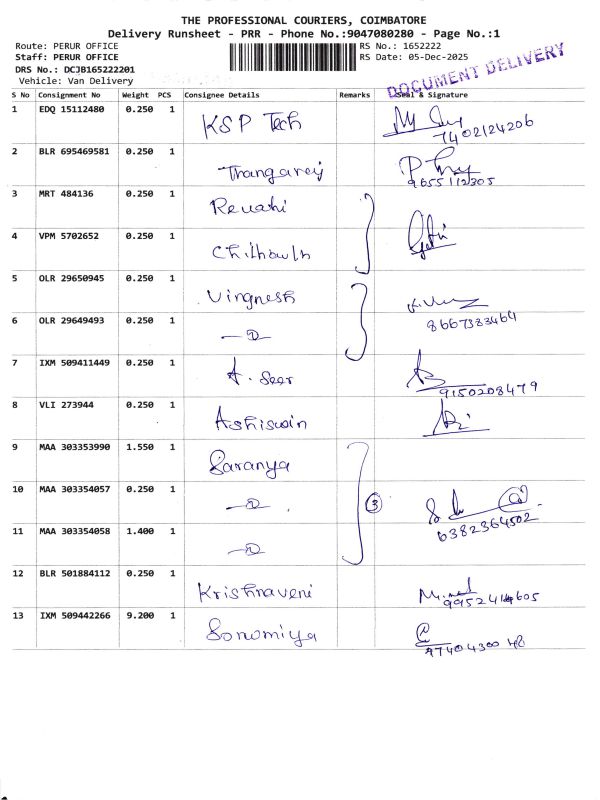 THE PROFESSIONAL COURIERS, COIMBATORE
Delivery Runsheet - PRR - Phone No.:9047080280 - Page No.:1
Route: PERUR OFFICE RS No.: 1652222
Staff: PERUR OFFICE RS Date: 05-Dec-2025
DRS No.: DCJB165222201
Vehicle: Van Delivery
DOCUMENT DELIVERY
S No Consignment No Weight PCS Consignee Details Remarks Seal & Signature
1 EDQ 15112480 0.250 1 KSP Tech
7402124206
2 BLR 695469581 0.250 1 Thangaraj
9655112305
3 MRT 484136 0.250 1 Revathi
4 VPM 5702652 0.250 1
5 OLR 29650945 0.250 1 Vingnesh
8667383464
6 OLR 29649493 0.250 1
7 IXM 509411449 0.250 1 A. Seer
9150208479
8 VLI 273944 0.250 1 Ashiswin
9 MAA 303353990 1.550 1 Saranya
10 MAA 303354057 0.250 1 3
6382364502
11 MAA 303354058 1.400 1
12 BLR 501884112 0.250 1 Krishnaveni
13 IXM 509442266 9.200 1 Sonomiya